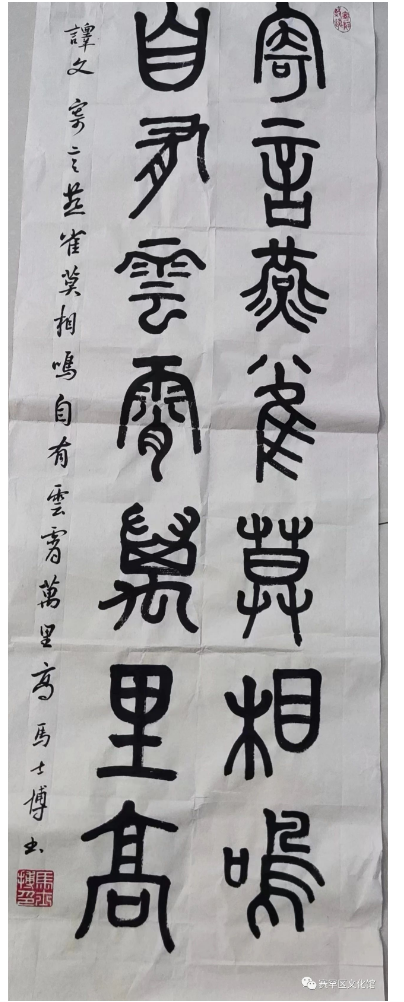 寄言燕雀莫相鳴
自有雲霄萬里高
譯文 寄言燕雀莫相鳴自有雲霄萬里高 馬士博書
馬士博印
兴宁区文化馆